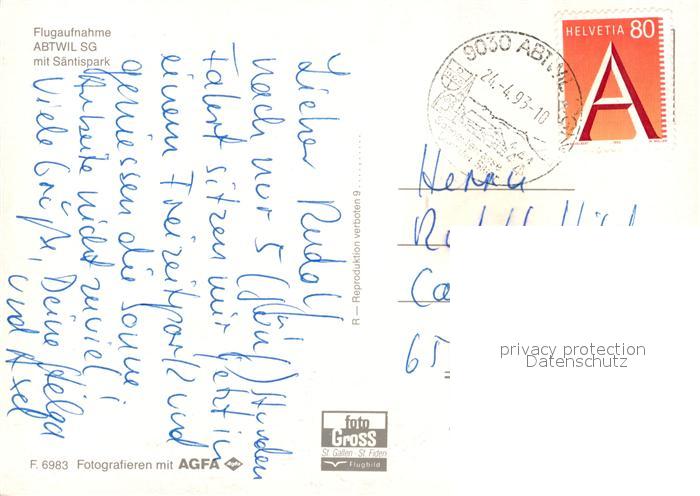 Flugaufnahme
ABTWIL SG
mit Säntispark
Lieber Rudolf
nach nur 5 Stunden
Fahrt sitzen wir jetzt in
einem Freizeitpark und
geniessen die Sonne
Arbeite nicht zuviel!
Viele Grüße, Deine Helga
und Axel
R — Reproduktion verboten 9
F. 6983 Fotografieren mit AGFA
foto
GROSS
St. Gallen · St. Fiden
Flugbild
9030 ABTWIL
24.-4.93-10
HELVETIA 80
A
Herrn
65
privacy protection
Datenschutz